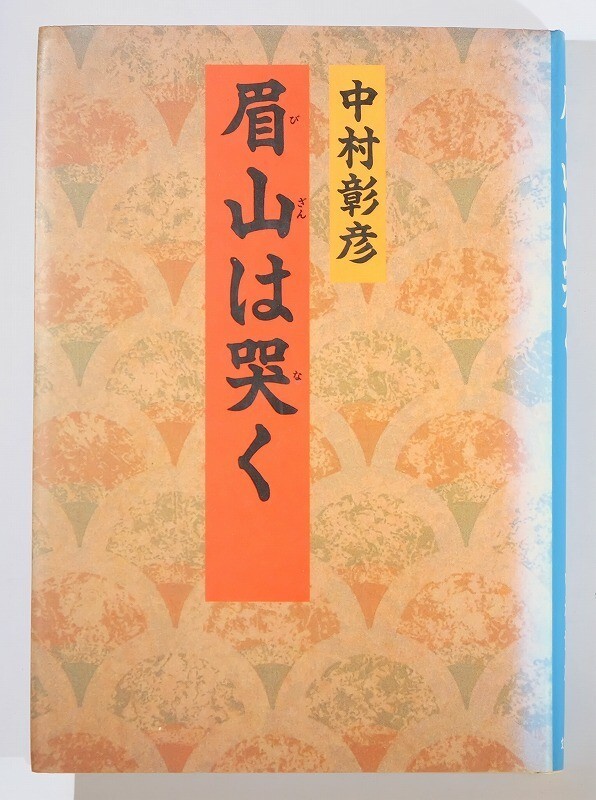 中村彰彦
眉山は哭く
びざん
な